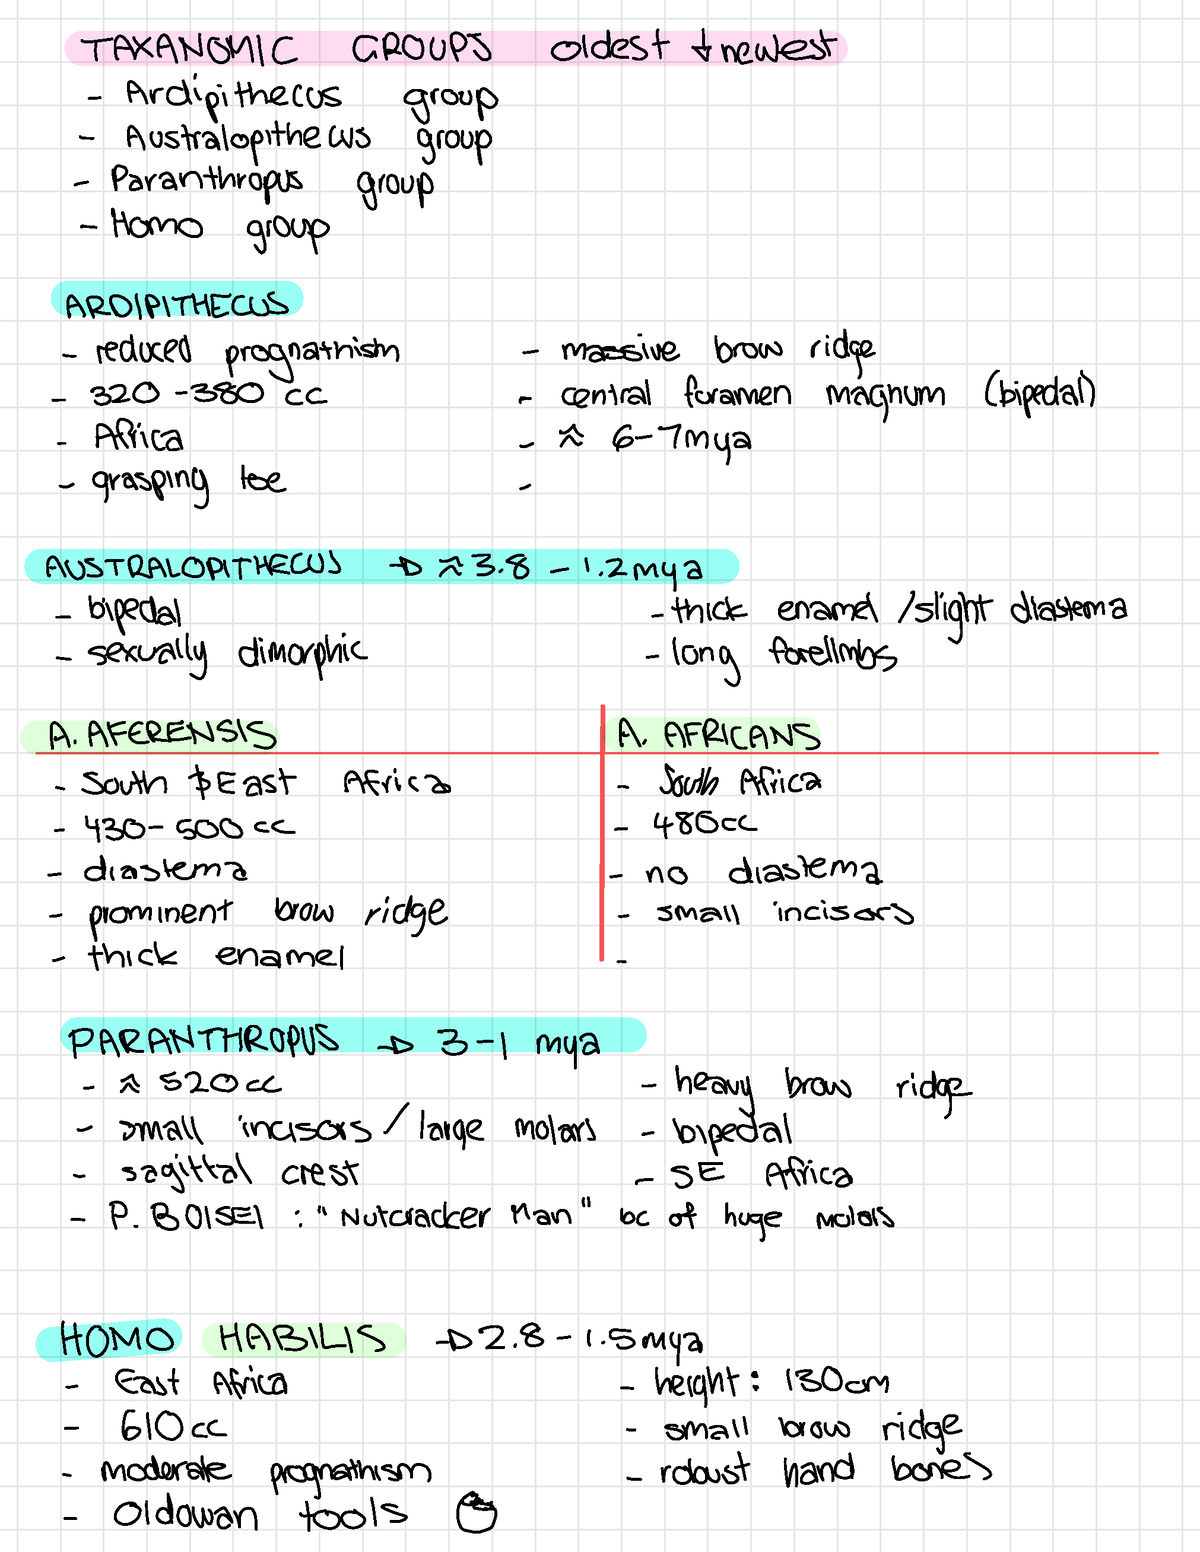 TAXANOMIC GROUPS oldest ↓ newest
- Ardipithecus group
- Australopithecus group
- Paranthropus group
- Homo group
ARDIPITHECUS
- reduced prognathism - massive brow ridge
- 320-380 cc - central foramen magnum (bipedal)
- Africa - ≈ 6-7mya
- grasping toe -
AUSTRALOPITHECUS → ≈3.8 - 1.2mya
- bipedal - thick enamel / slight diastema
- sexually dimorphic - long forelimbs
A. AFERENSIS A. AFRICANS
- South & East Africa - South Africa
- 430-500cc - 486cc
- diastema - no diastema
- prominent brow ridge - small incisors
- thick enamel -
PARANTHROPUS → 3-1 mya
- ≈ 520cc - heavy brow ridge
- small incisors / large molars - bipedal
- sagittal crest - SE Africa
- P. BOISEI : "Nutcracker Man" bc of huge molars
HOMO HABILIS → 2.8 - 1.5mya
- East Africa - height: 130cm
- 610cc - small brow ridge
- moderate prognathism - robust hand bones
- Oldowan tools